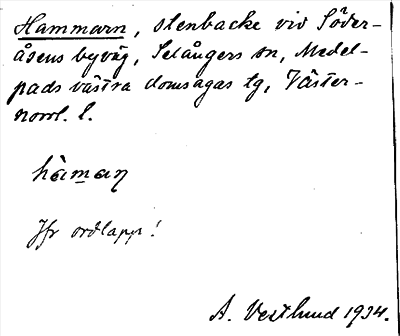 Hammarn, stenbacke vid Söder-
åsens byväg, Selångers sn, Medel-
pads västra domsagas tg, Väster-
norrl. l.
hàmaṇ
Jfr ordlapp!
A. Vestlund 1934.